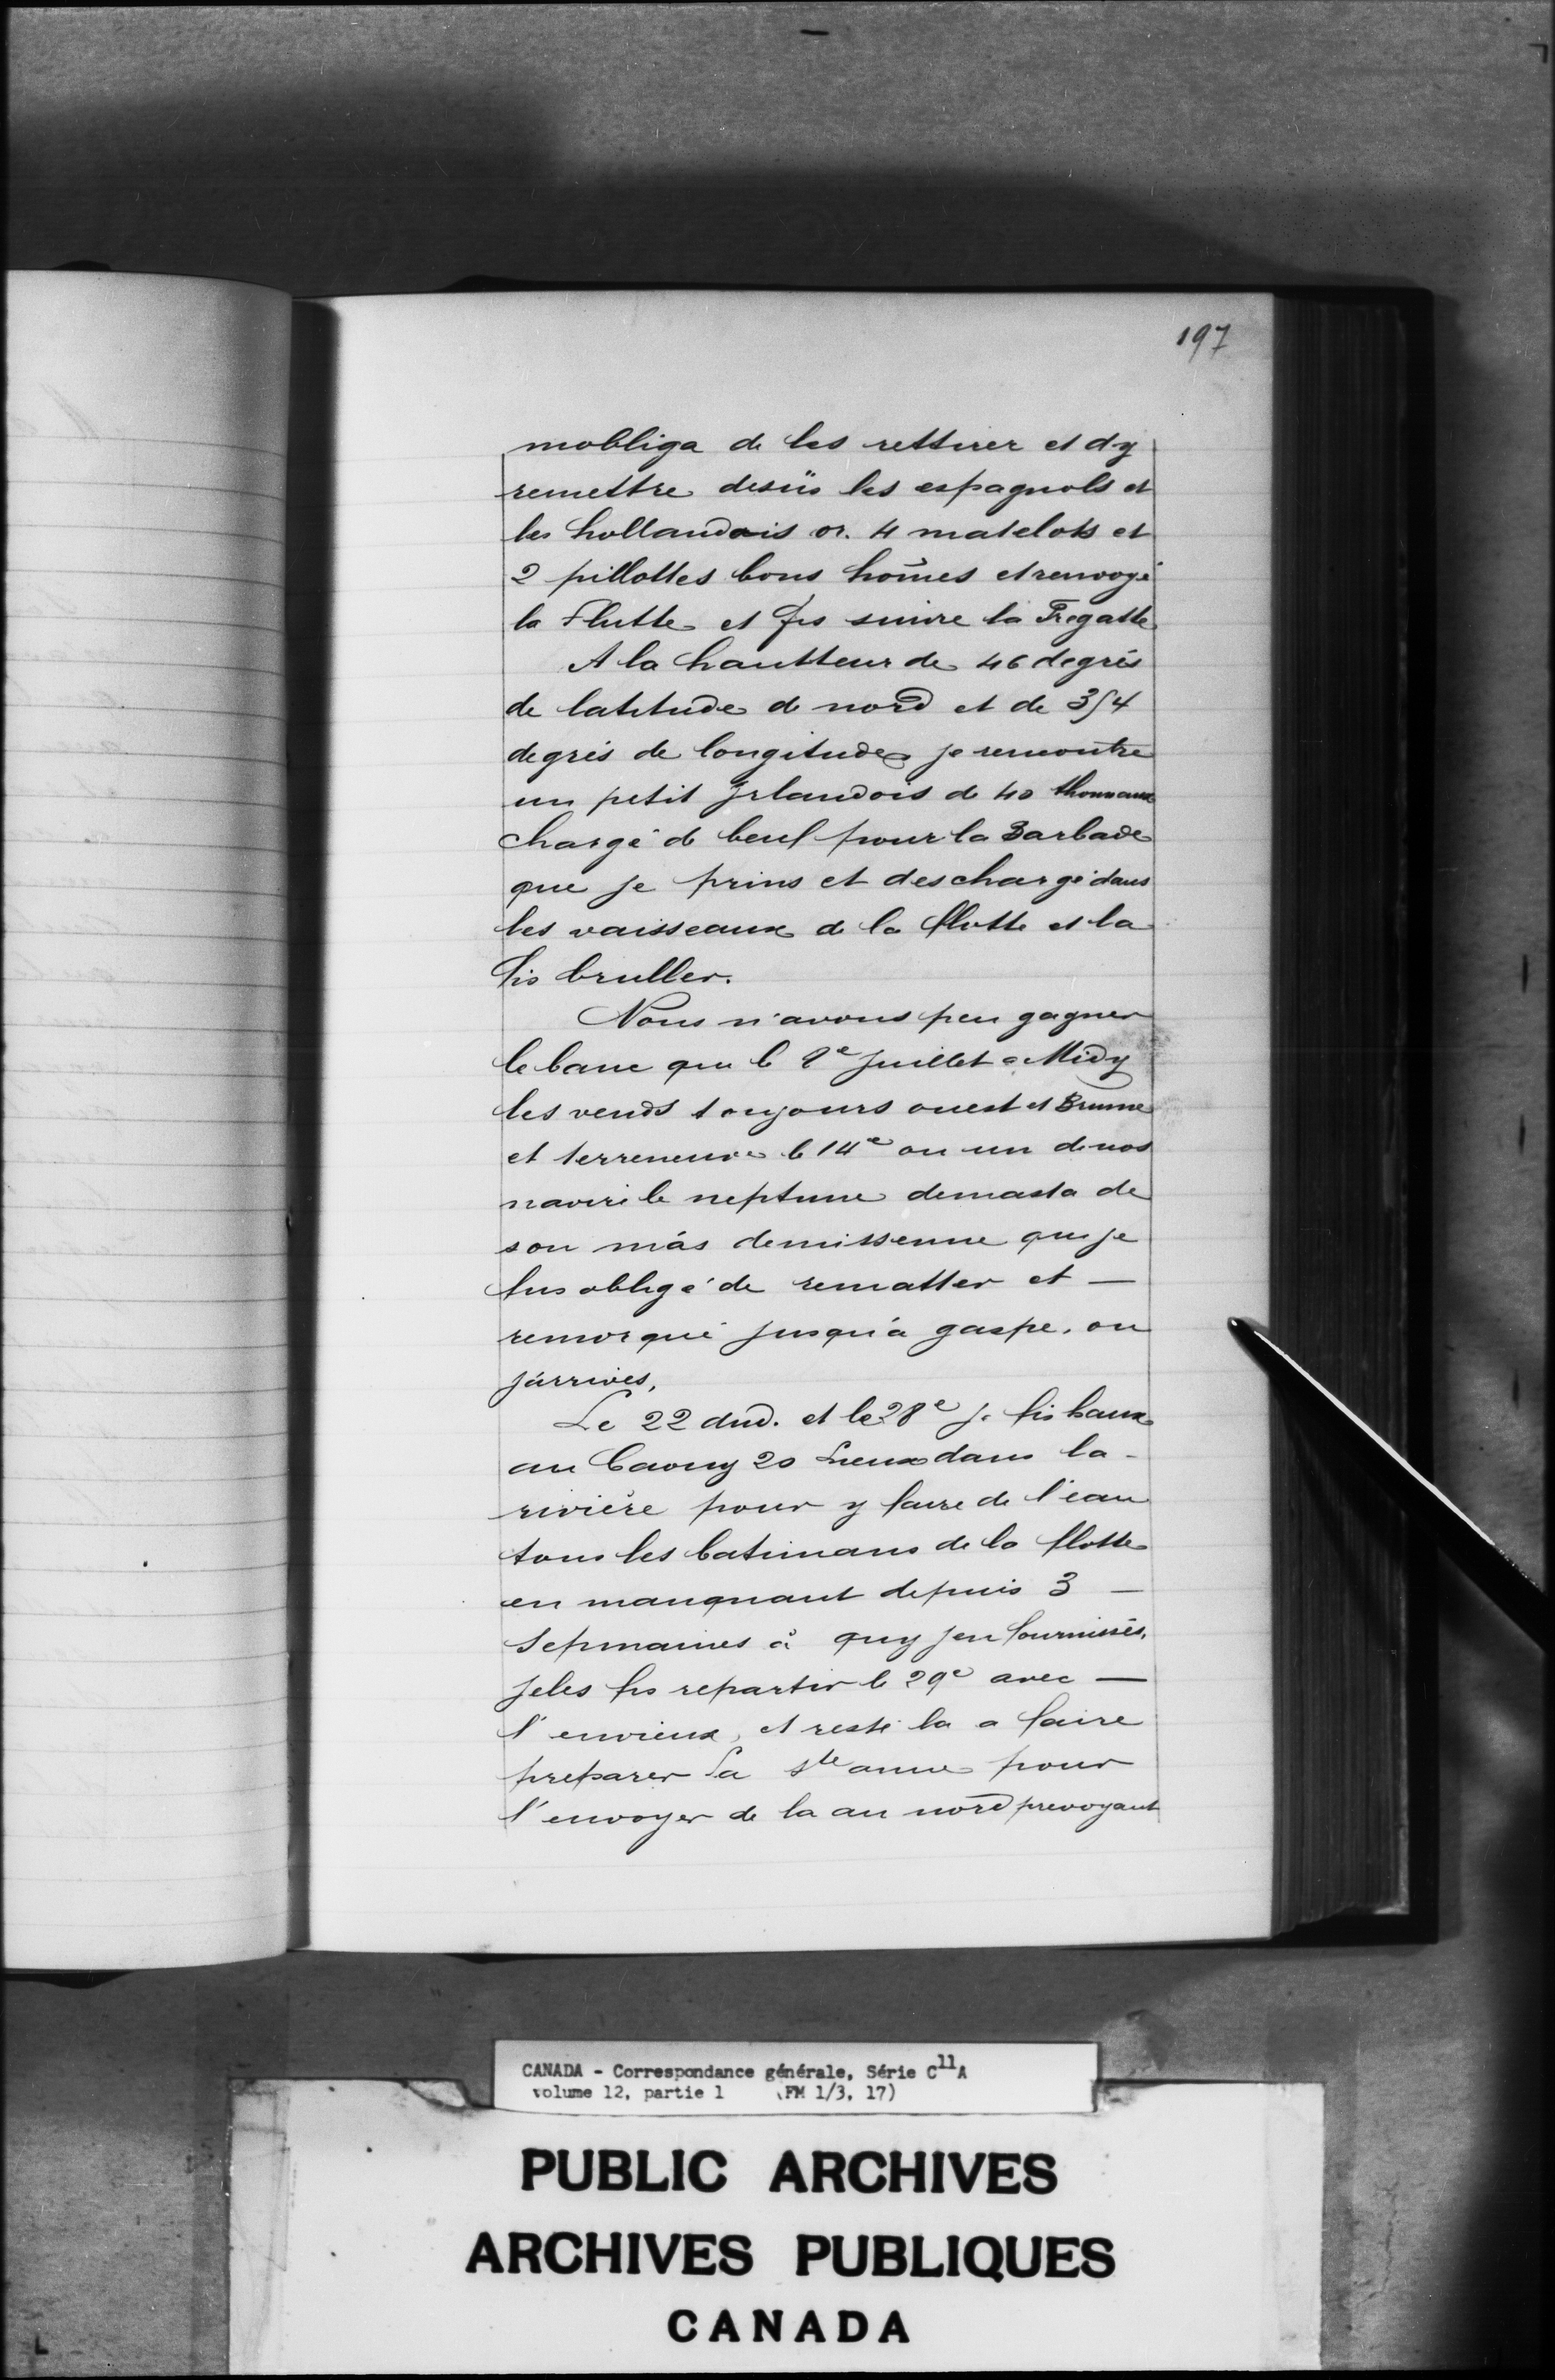 197
mobliga de les rettirer et dy
remettre desüs les espagnols et
les hollandois or. 4 matelots et
2 pillottes bons hom̃es et renvoyé
la Flutte et fis suivre la Fregatte
A la hautteur de 46 degrés
de latitude de nord et de 354
degrés de longitude je rencontre
un petit Jrlandois de 40 thonnaux
chargé de beuf pour la Barbade
que je prins et deschargé dans
les vaisseaux de la flotte et la
fis bruller.
Nous n'avons peu gagner
le banc que le 8e Juillet a Midy
les vends toujours ouest et Brunne
et terreneuve le 14e ou un de nos
navire le neptune demasta de
son màs demissenne que je
fus obligé de rematter et —
remorqué jusqu'a gaspe. ou
j'arrives,
Le 22 dud. et le 28e je fis haux
au Cavouy 20 Lieux dans la -
rivière pour y faire de l'eau
tous les batimans de la flotte
en manquant depuis 3 —
Sepmaines à quy jen fournisses,
Je les fis repartir le 29e avec —
l'envieux, et resté la a faire
preparer la ste anne pour
l'envoyer de la au nord prevoyant
CANADA - Correspondance générale, Série C11A
volume 12, partie 1 (FM 1/3, 17)
PUBLIC ARCHIVES
ARCHIVES PUBLIQUES
CANADA